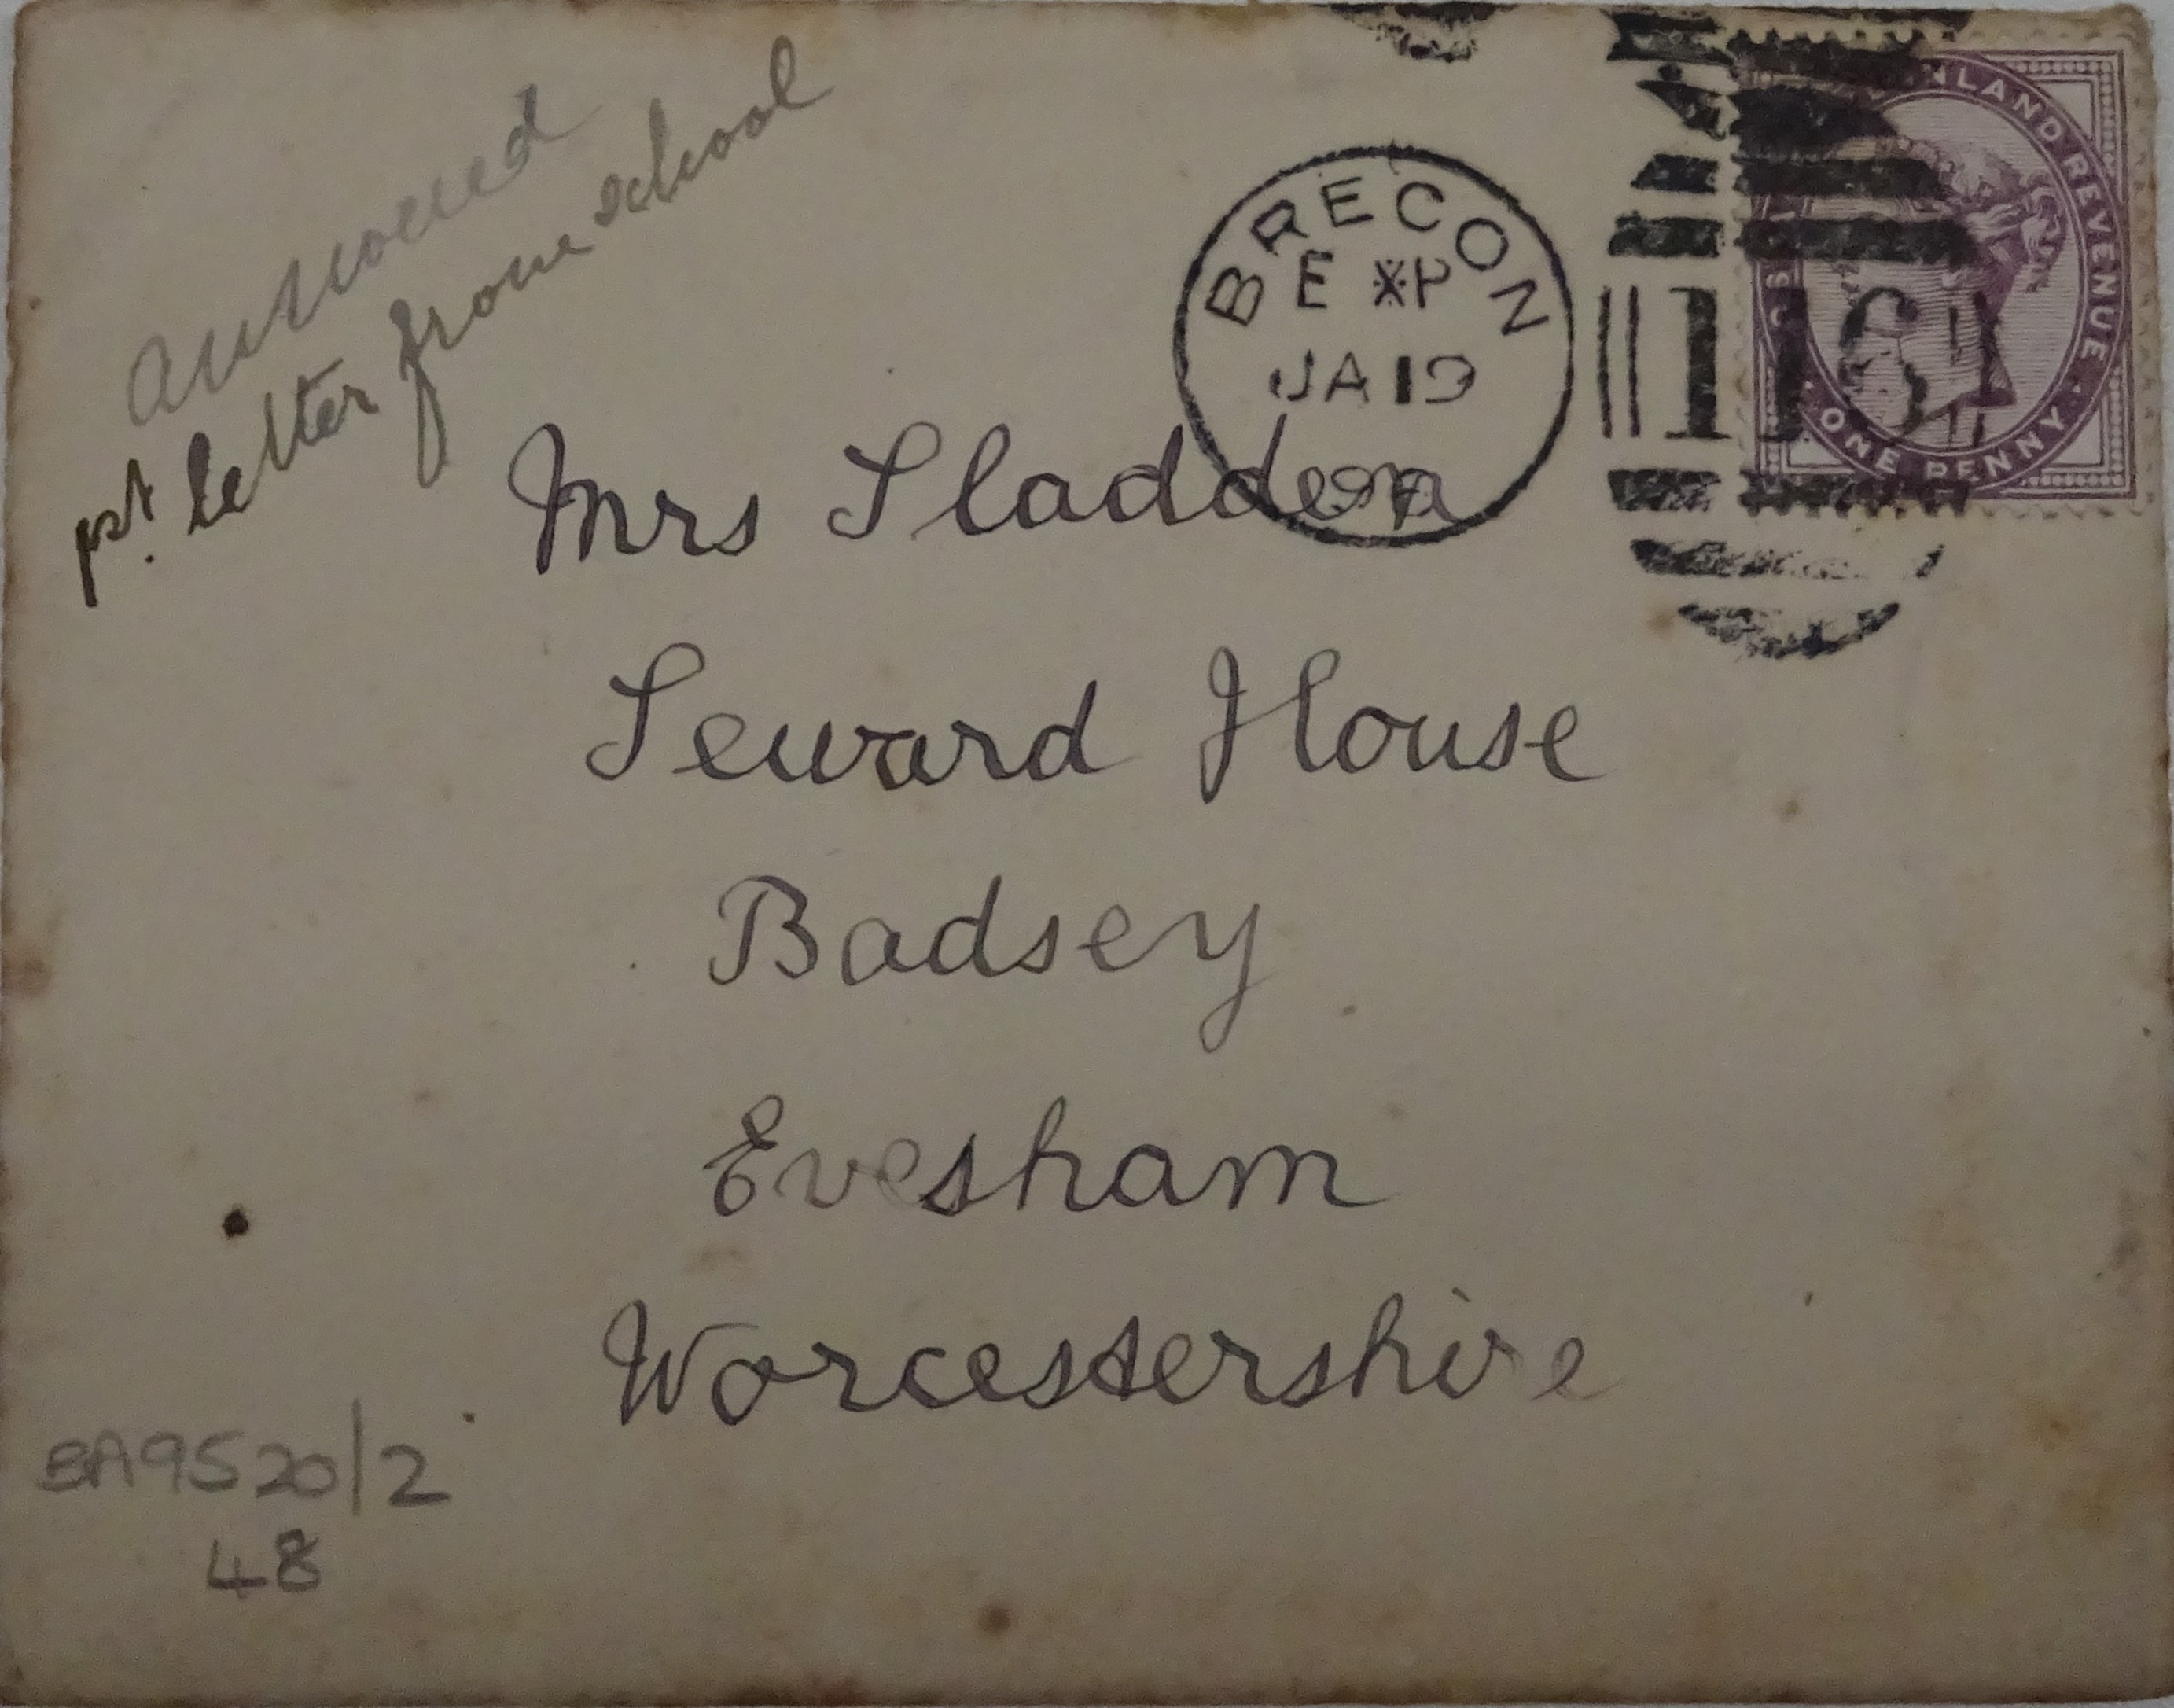 answered
1st letter from school
BRECON
E * P
JA 19
97
116
INLAND REVENUE
ONE PENNY
Mrs Sladden
Seward House
Badsey
Evesham
Worcestershire
BA9520/2
48